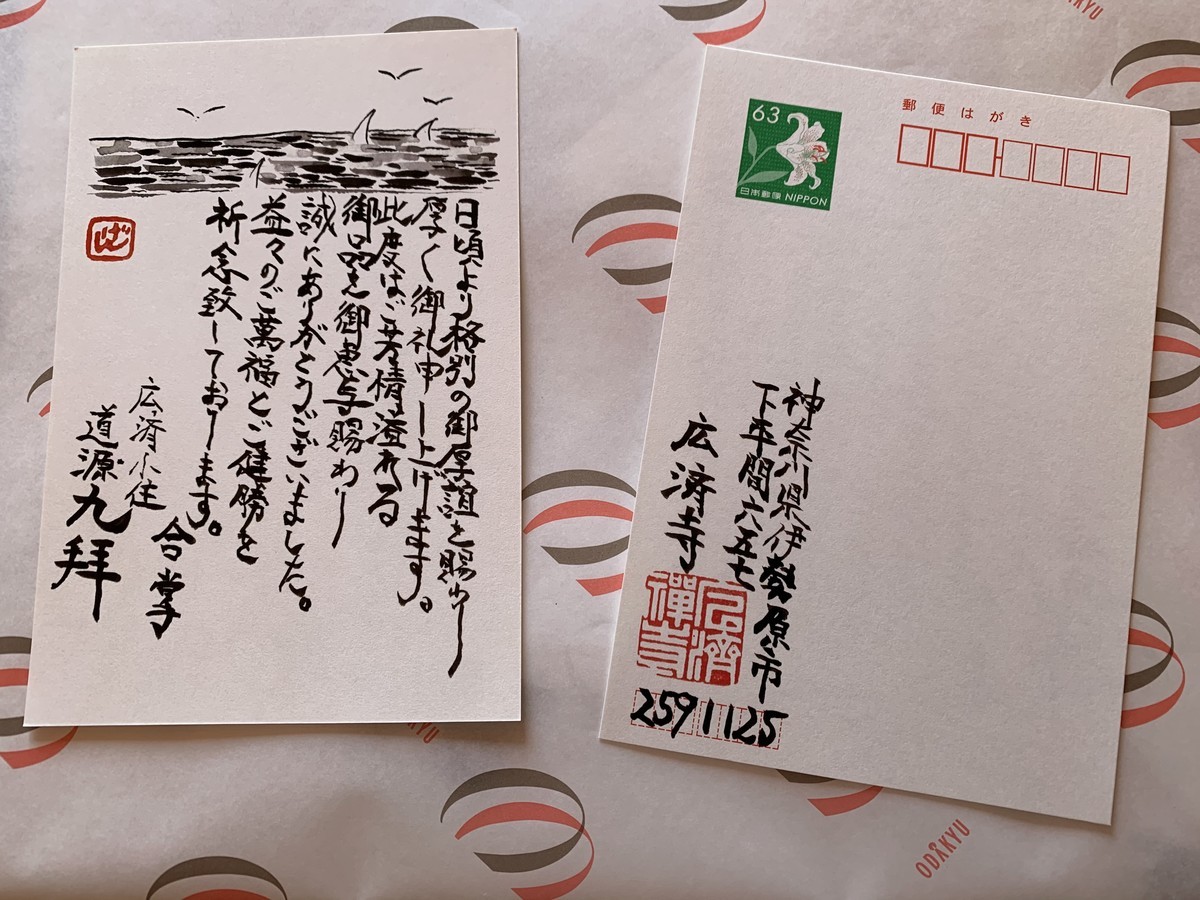 日頃より格別の御厚誼を賜わり
厚く御礼申し上げます。
此度はご芳情溢れる
御品を御恵与賜わり
誠にありがとうございました。
益々のご萬福とご健勝を
祈念致しております。
合掌
広済小住
道源九拝
げん
63
日本郵便 NIPPON
郵便はがき
神奈川県伊勢原市
下平間六五七
広済寺
広濟
禅寺
2591125
ODAKYU
ODAKYU
ODAKYU